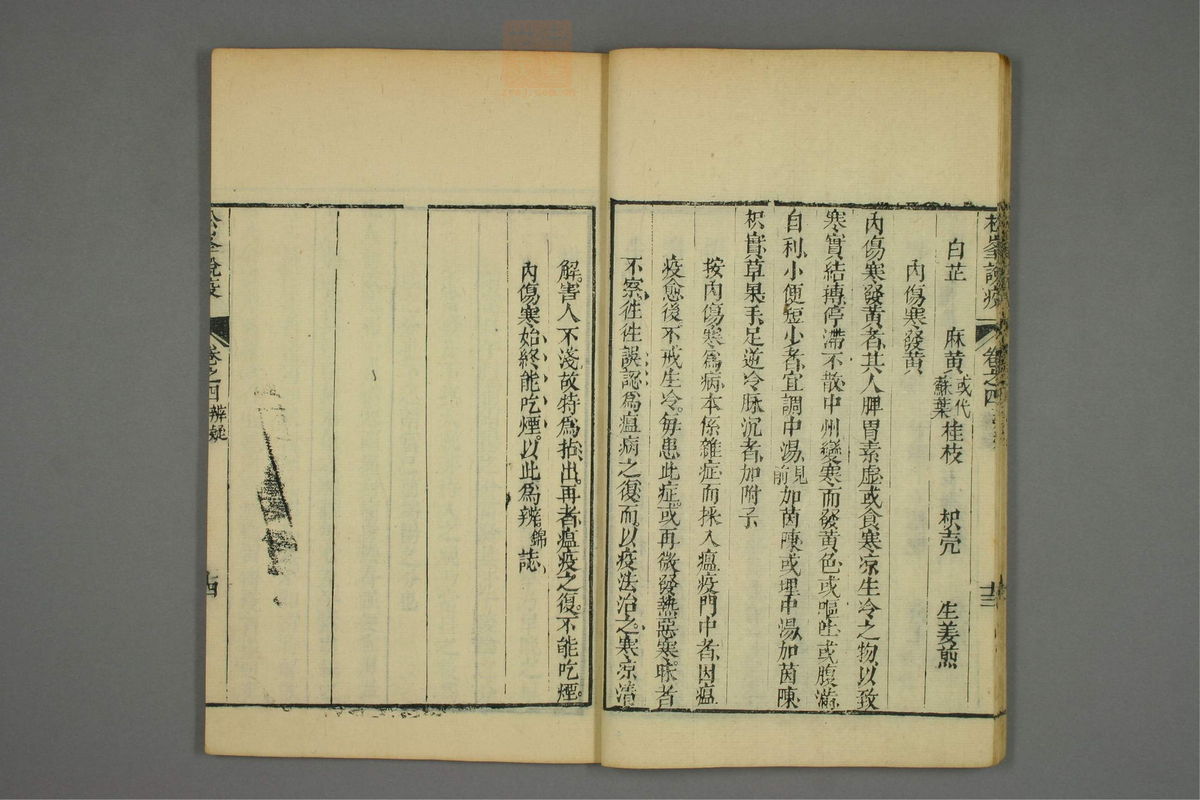 松峯説疫 卷之四 十三
白芷 麻黃 或代蘇葉 桂枝 枳壳 生姜煎
內傷寒發黃
內傷寒發黃者其人脾胃素虛或食寒凉生冷之物以致
寒實結搏停滯不散中州變寒而發黃色或嘔吐或腹滿
自利小便短少者宜調中湯見前加茵陳或理中湯加茵陳
枳實草果手足逆冷脉沉者加附子
按內傷寒爲病本係雜症而採入瘟疫門中者因瘟
疫愈後不戒生冷每患此症或再微發熱惡寒昧者
不察往往誤認爲瘟病之復而以疫法治之寒凉清
解害人不淺故特爲拈出再者瘟疫之復不能吃煙
內傷寒始終能吃煙以此爲辨錦誌
松峯說疫 卷之四 辨疑 十四